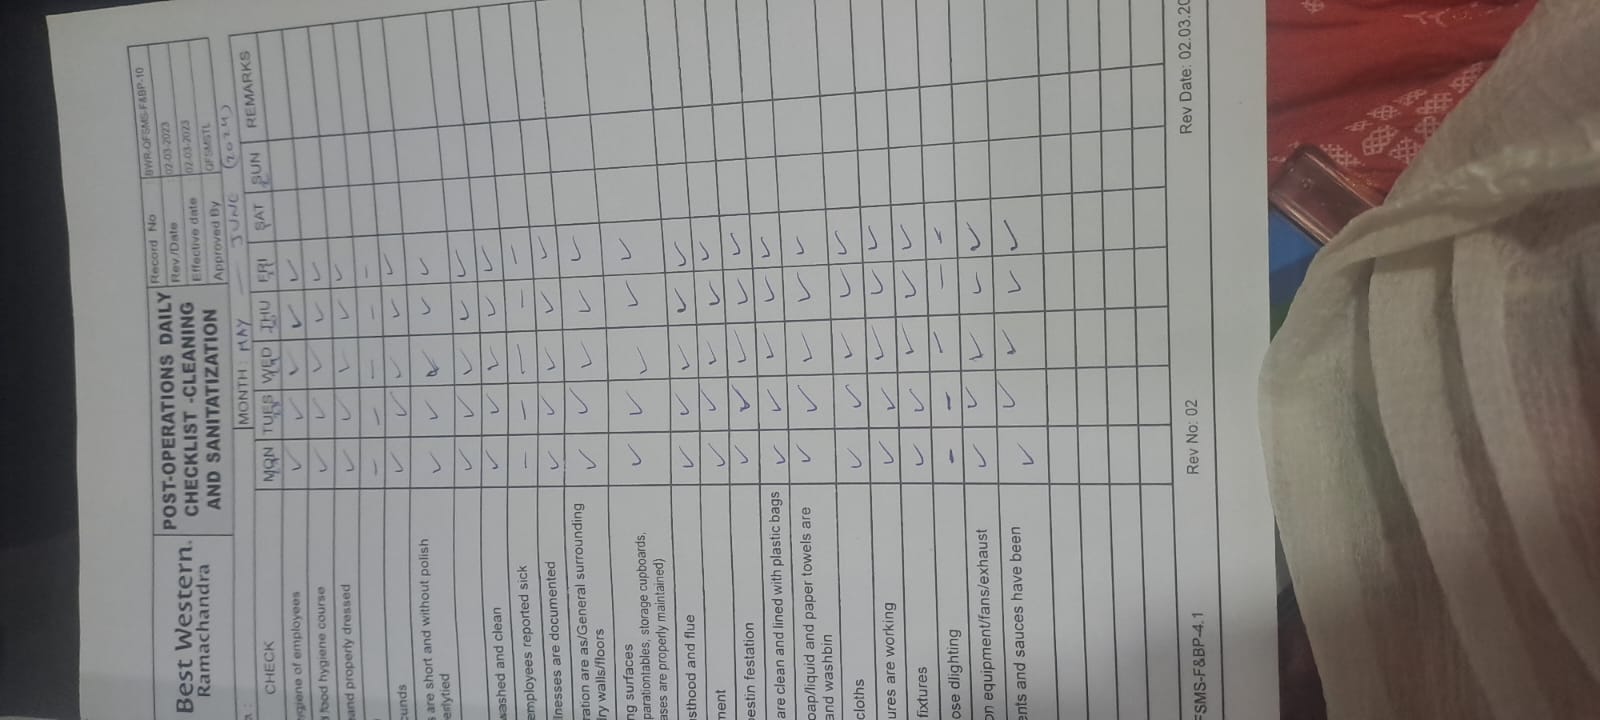 Best Western.
Ramachandra
POST-OPERATIONS DAILY
CHECKLIST -CLEANING
AND SANITATIZATION
Record No BWR-QFSMS-F&BP-10
Rev./Date 02-03-2023
Effective date 02-03-2023
Approved By QFSMSTL
MONTH : MAY — JUNE (2024)
CHECK MON TUES WED THU FRI SAT SUN REMARKS
ygiene of employees ✓ ✓ ✓ ✓ ✓
food hygiene course ✓ ✓ ✓ ✓ ✓
and properly dressed ✓ ✓ ✓ ✓ ✓
— — — — —
ounds ✓ ✓ ✓ ✓ ✓
s are short and without polish ✓ ✓ ✓ ✓ ✓
erlytied
✓ ✓ ✓ ✓ ✓
washed and clean ✓ ✓ ✓ ✓ ✓
employees reported sick — — — — —
lnesses are documented ✓ ✓ ✓ ✓ ✓
ration are as/General surrounding ✓ ✓ ✓ ✓ ✓
ry walls/floors
ng surfaces ✓ ✓ ✓ ✓ ✓
parationtables, storage cupboards,
ases are properly maintained)
sthood and flue ✓ ✓ ✓ ✓ ✓
ment ✓ ✓ ✓ ✓ ✓
estin festation ✓ ✓ ✓ ✓ ✓
are clean and lined with plastic bags ✓ ✓ ✓ ✓ ✓
oap/liquid and paper towels are ✓ ✓ ✓ ✓ ✓
and washbin
cloths ✓ ✓ ✓ ✓ ✓
ures are working ✓ ✓ ✓ ✓ ✓
fixtures ✓ ✓ ✓ ✓ ✓
ose dlighting — — — — —
on equipment/fans/exhaust ✓ ✓ ✓ ✓ ✓
ents and sauces have been ✓ ✓ ✓ ✓ ✓
FSMS-F&BP-4.1 Rev No: 02 Rev Date: 02.03.20